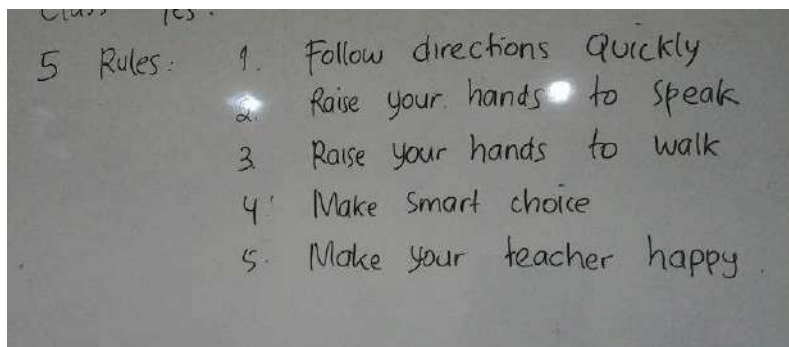 Class Yes.
5 Rules: 1. Follow directions Quickly
2. Raise your hands to speak
3 Raise your hands to walk
4. Make smart choice
5. Make your teacher happy.